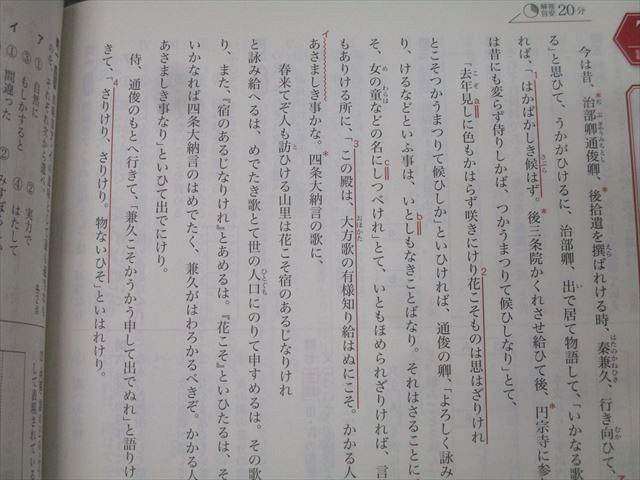 解答目安 20分
今は昔、治部卿通俊卿、後拾遺を撰ばれける時、秦兼久、行き向ひて、
る」と思ひて、うかがひけるに、治部卿、出で居て物語して、「いかなる歌
れば、「はかばかしき候はず。後三条院かくれさせ給ひて後、円宗寺に参
は昔にも変らず侍りしかば、つかうまつりて候ひしなり」とて、
「去年見しに色もかはらず咲きにけり花こそものは思はざりけれ
とこそつかうまつりて候ひしか」といひければ、通俊の卿、「よろしく詠み
り、けるなどといふ事は、いとしもなきことばなり。それはさることに
そ、女の童などの名にしつべけれ」とて、いともほめられざりければ、言
もありける所に、「この殿は、大方歌の有様知り給はぬにこそ。かかる人
あさましき事かな。四条大納言の歌に、
春来てぞ人も訪ひける山里は花こそ宿のあるじなりけれ
と詠み給へるは、めでたき歌とて世の人口にのりて申すめるは。その歌
り、また、『宿のあるじなりけれ』とあめるは。『花こそ』といひたるは、そ
いかなれば四条大納言のはめでたく、兼久がはわろかるべきぞ。かかる人
あさましき事なり」といひて出でにけり。
侍、通俊のもとへ行きて、「兼久こそかうかう申して出でぬれ」と語りけ
きて、「さりけり、さりけり。物ないひそ」といはれけり。
ア ① 自然に ② 実力で
③ もしかすると ④ はたして
イ ① 間違った ②